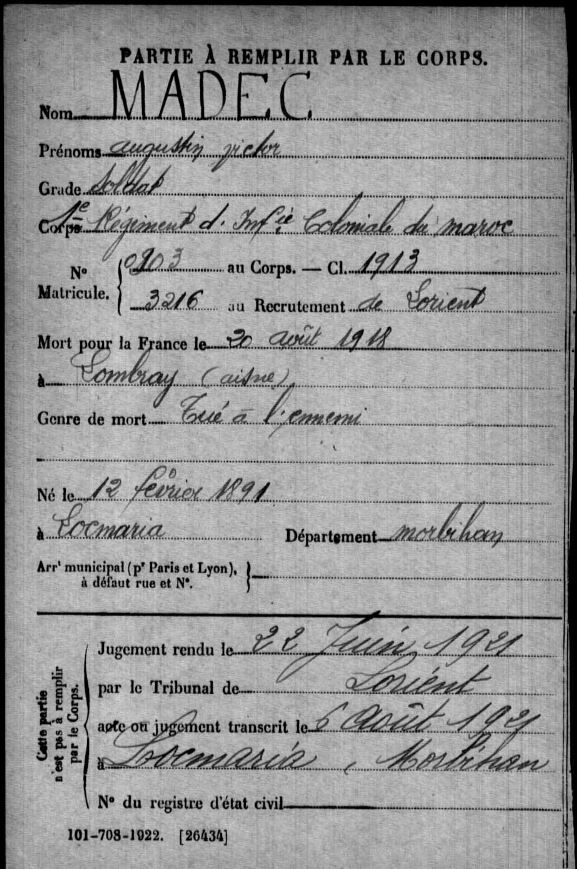 PARTIE À REMPLIR PAR LE CORPS.
Nom MADEC
Prénoms augustin victor
Grade Soldat
Corps 1e Régiment d'Infie Coloniale du maroc
N° Matricule. { 0203 au Corps. — Cl. 1913
3216 au Recrutement de Lorient
Mort pour la France le 20 août 1918
à Lombray (aisne)
Genre de mort Tué à l'ennemi
Né le 12 février 1891
à Locmaria Département morbihan
Arrt municipal (pr Paris et Lyon), à défaut rue et N°. }
Cette partie n'est pas à remplir par le Corps.
Jugement rendu le 22 Juin 1921
par le Tribunal de Lorient
acte ou jugement transcrit le 6 Août 1921
à Locmaria, Morbihan
N° du registre d'état civil
101-708-1922. [26434]